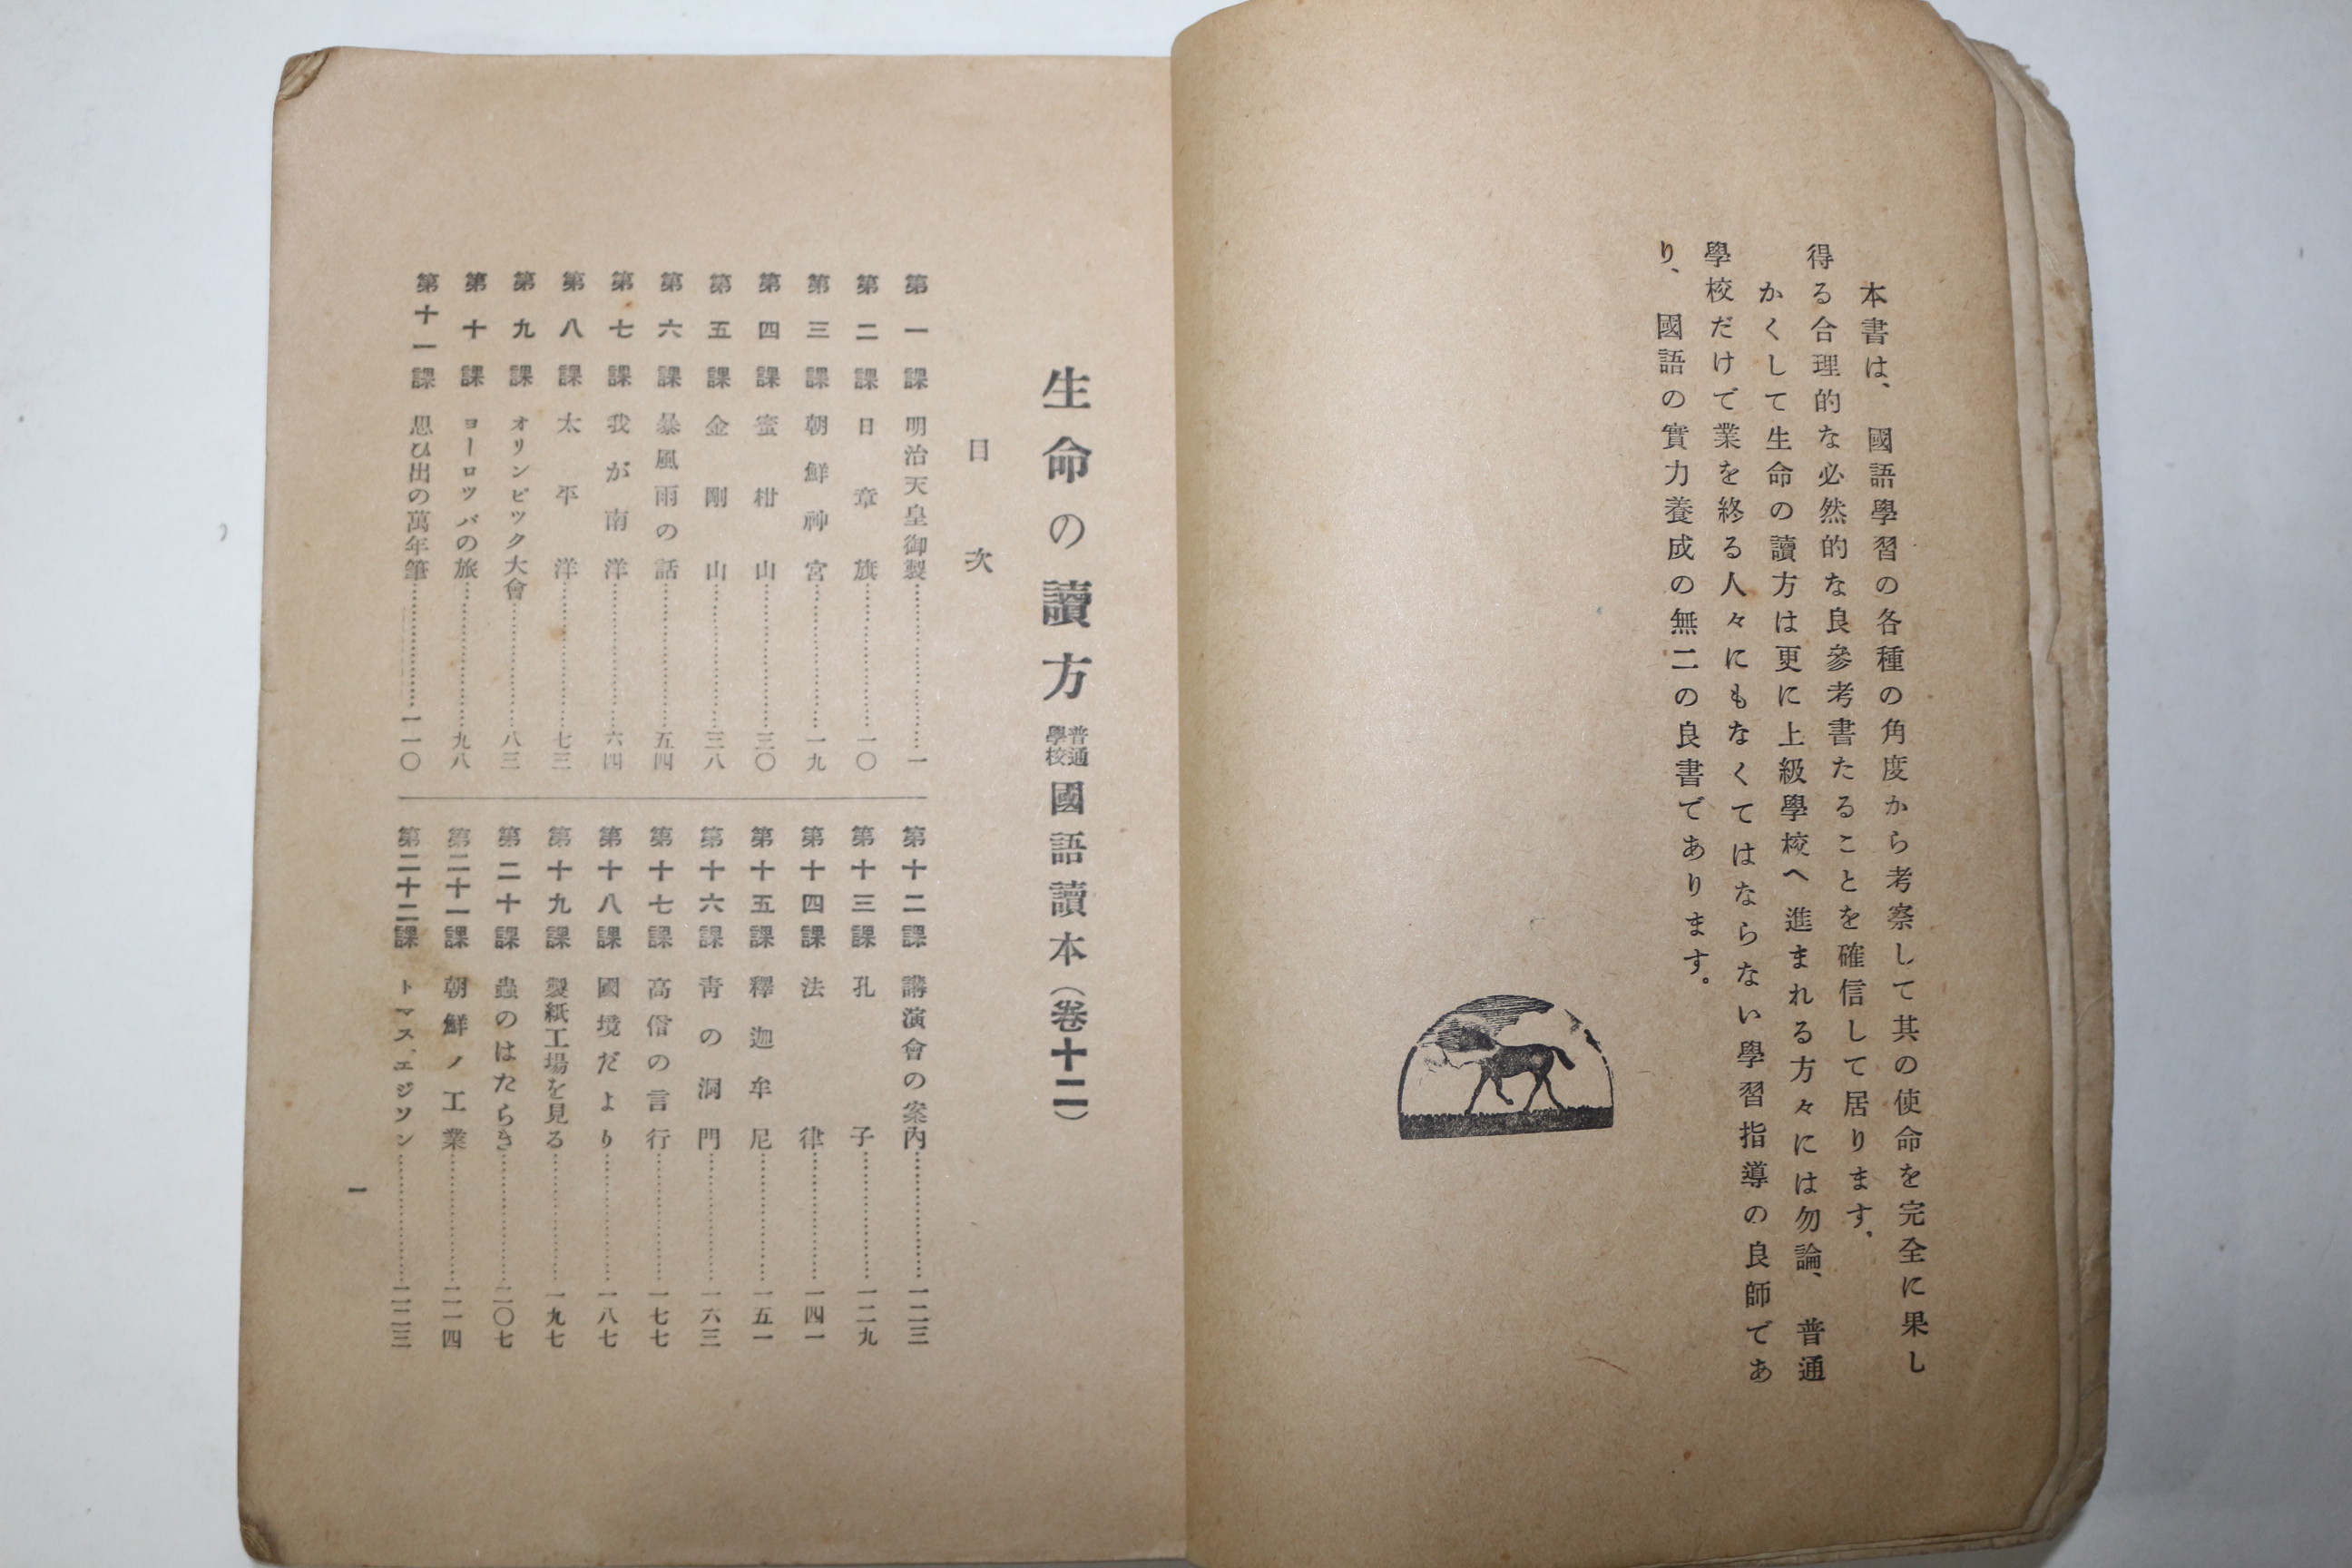 本書は、國語學習の各種の角度から考察して其の使命を完全に果し
得る合理的な必然的な良參考書たることを確信して居ります。
かくして生命の讀方は更に上級學校へ進まれる方々には勿論、普通
學校だけで業を終る人々にもなくてはならない學習指導の良師であ
り、國語の實力養成の無二の良書であります。
生命の讀方 普通學校 國語讀本（卷十二）
目次
第一課 明治天皇御製……一
第二課 日章旗……一〇
第三課 朝鮮神宮……一九
第四課 蜜柑山……三〇
第五課 金剛山……三八
第六課 暴風雨の話……五四
第七課 我が南洋……六四
第八課 太平洋……七三
第九課 オリンピック大會……八三
第十課 ヨーロツパの旅……九八
第十一課 思ひ出の萬年筆……一一〇
第十二課 講演會の案內……一二三
第十三課 孔子……一二九
第十四課 法律……一四一
第十五課 釋迦牟尼……一五一
第十六課 靑の洞門……一六三
第十七課 高僧の言行……一七七
第十八課 國境だより……一八七
第十九課 製紙工場を見る……一九七
第二十課 蟲のはたらき……二〇七
第二十一課 朝鮮ノ工業……二一四
第二十二課 トマス、エジソン……二二三
一